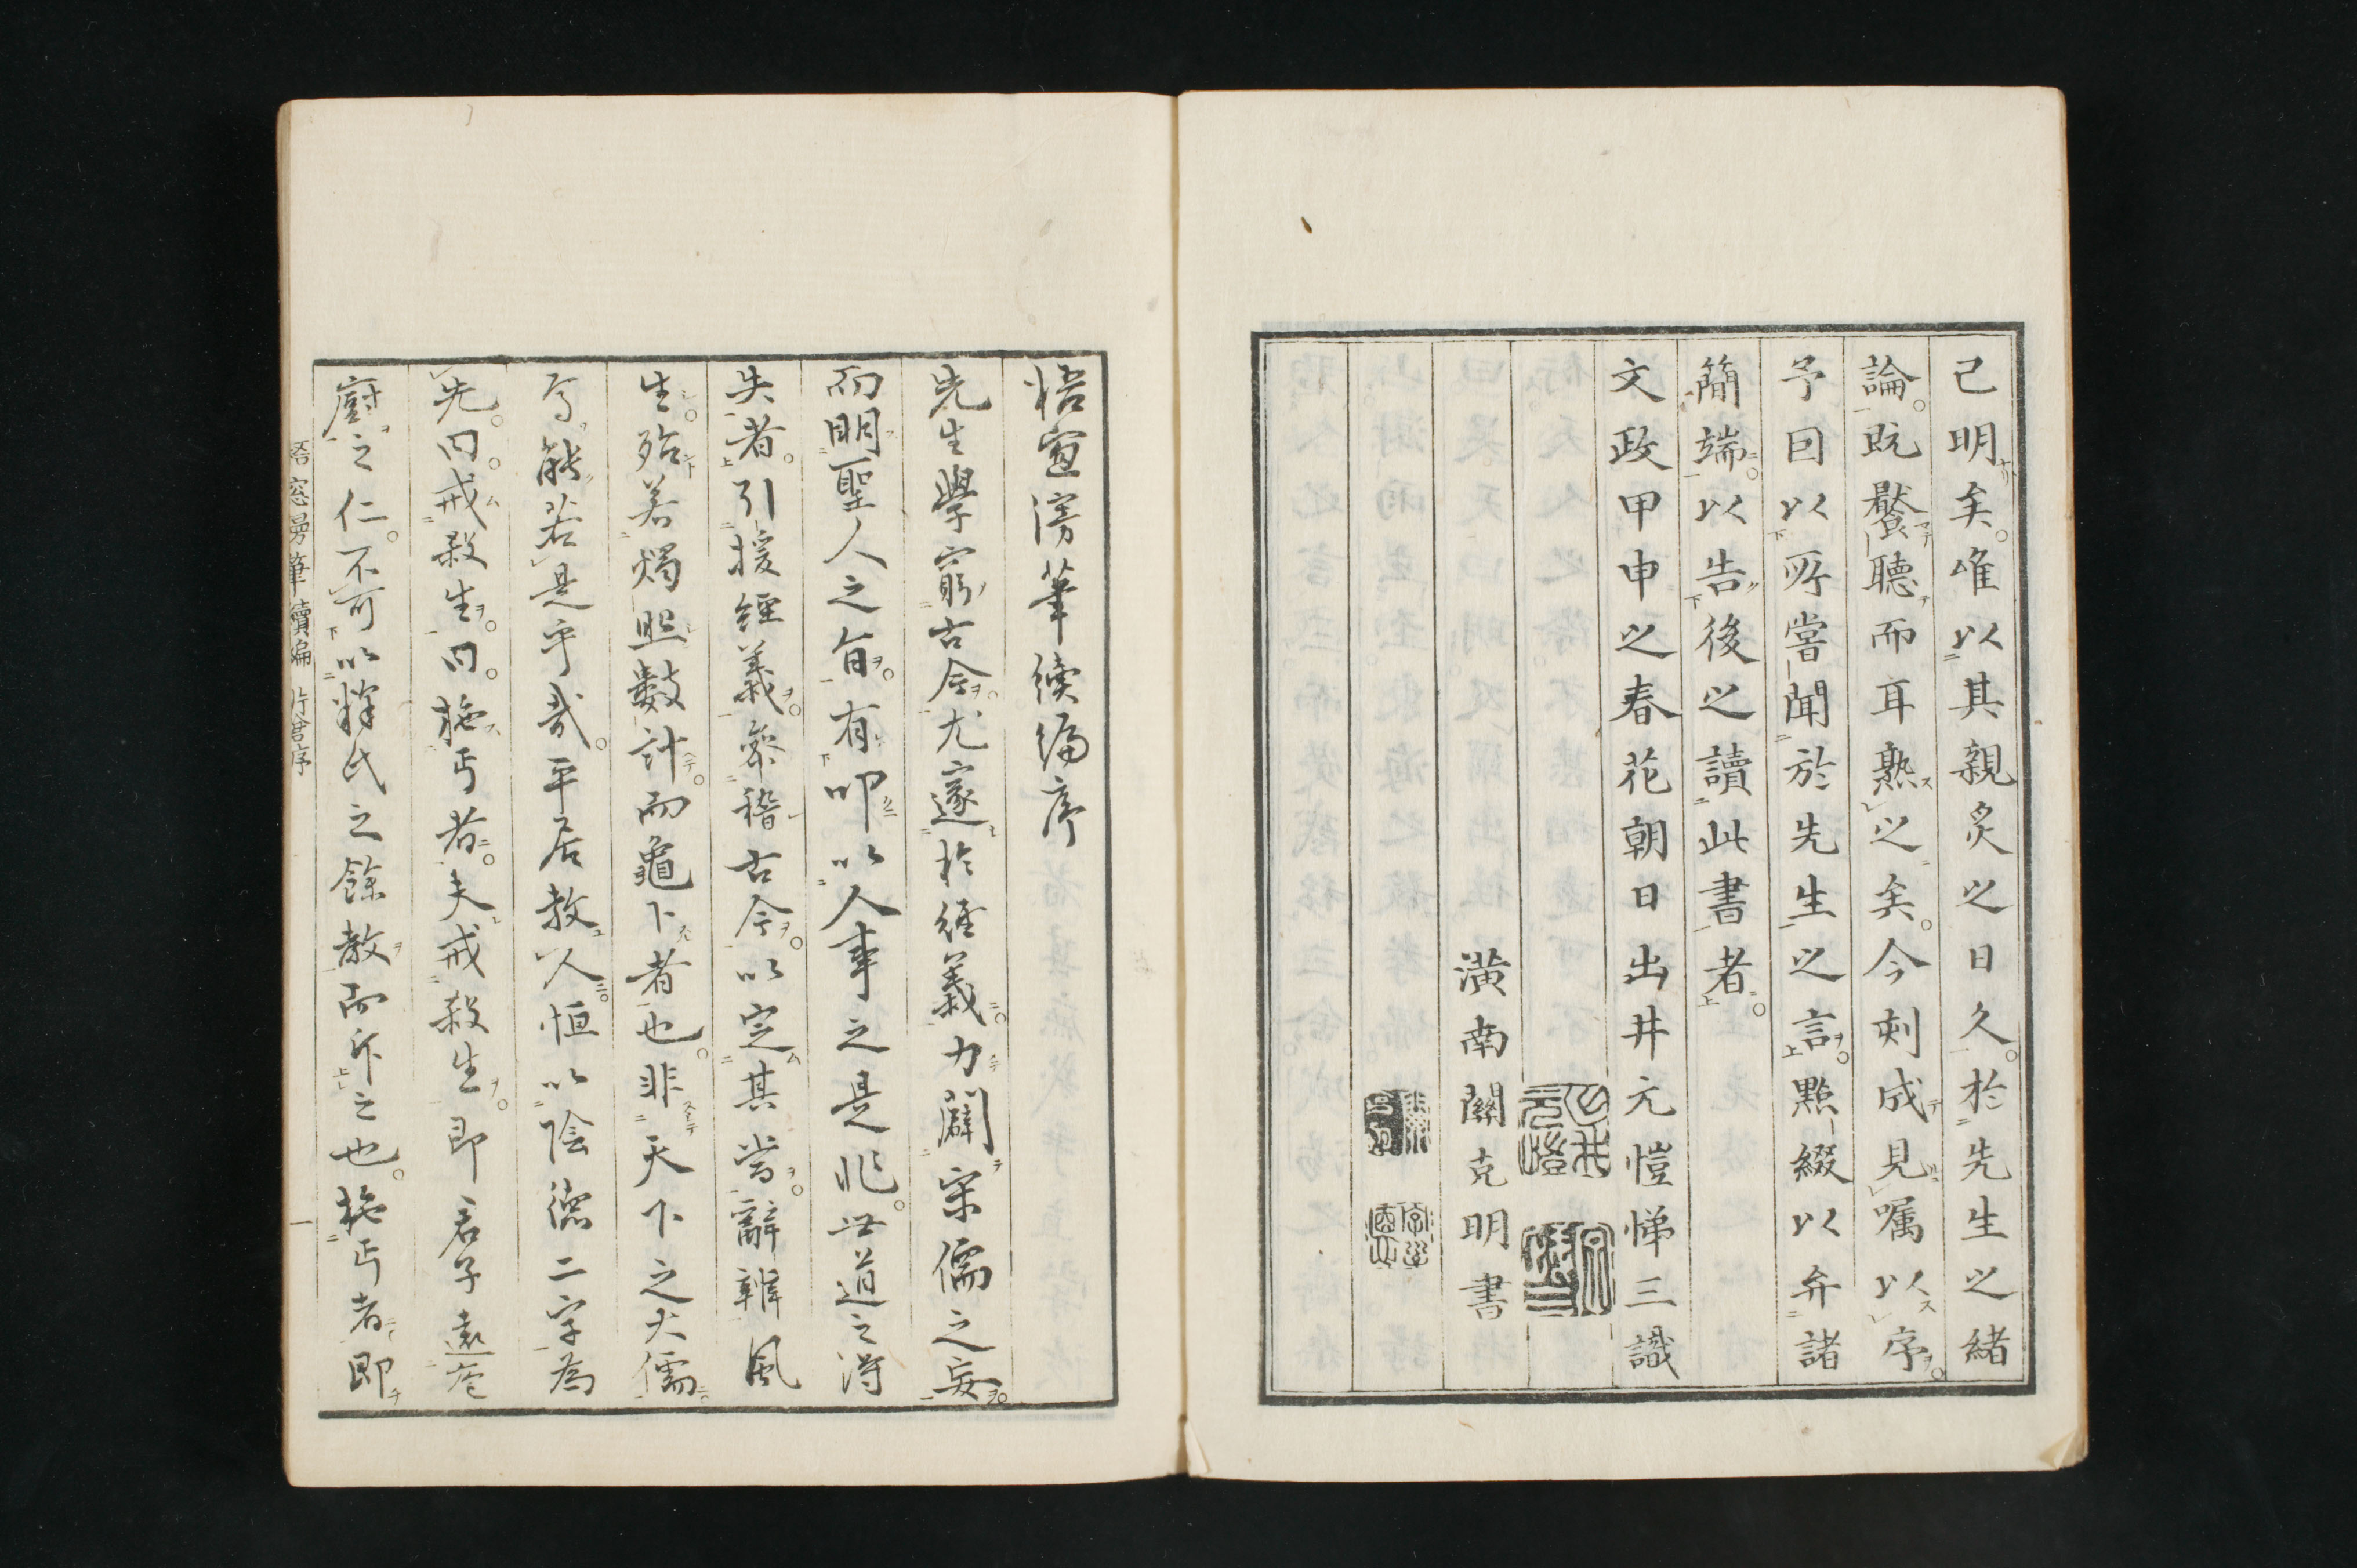 已明矣唯以其親炙之日久於先生之緒
論既饜聽而耳熟之矣今刻成見嘱以序
予因以所嘗聞於先生之言點綴以弁諸
簡端以告後之讀此書者
文政甲申之春花朝日出井元愷悌三識
潢南關克明書
梧窓漫筆續編序
先生學窮古今尤邃於經義力闢宋儒之妄
而明聖人之旨有叩以人事之是非世道之得
失者引援經義參稽古今以定其當辭辨風
生殆若燭照數計而龜卜者也非天下之大儒
焉能若是乎哉平居教人恒以陰德二字為
先曰戒殺生曰施丐者夫戒殺生即君子遠庖
廚之仁不可以釋氏之餘教而斥之也施丐者即
梧窓漫筆續編 片倉序 一